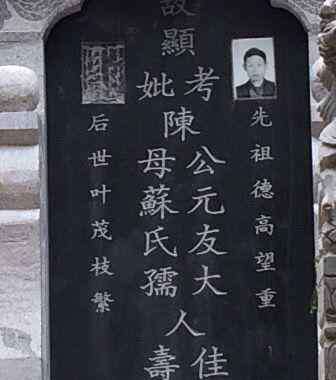 先祖德高望重
故顯
考妣
陳
公元友大
母蘇氏孺
人
佳壽
后世叶茂枝繁